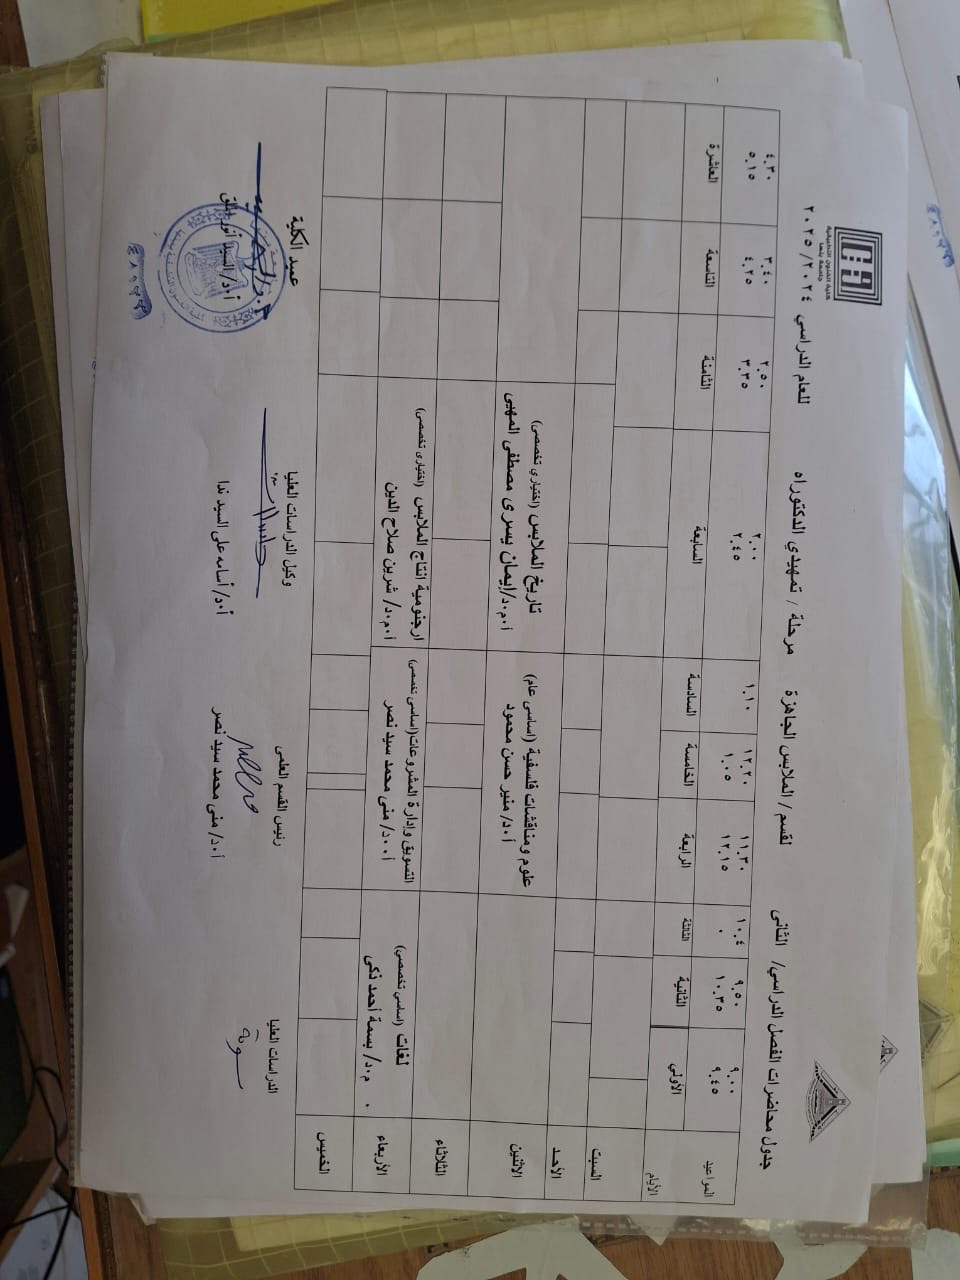 كلية الفنون التطبيقية
جامعة بنها
جدول محاضرات الفصل الدراسي/ الثانى لقسم / الملابس الجاهزة مرحلة / تمهيدي الدكتوراه للعام الدراسي ٢٠٢٤/ ٢٠٢٥
المواعيد ٩.٠٠ ٩.٥٠ ١٠.٤ ١١.٣٠ ١٢.٢٠ ١.١٠ ٢.٠٠ ٢.٥٠ ٣.٤٠ ٤.٣٠
٩.٤٥ ١٠.٣٥ ٠ ١٢.١٥ ١.٠٥ ٢.٤٥ ٣.٣٥ ٤.٢٥ ٥.١٥
الأيام الأولي الثانية الثالثة الرابعة الخامسة السادسة السابعة الثامنة التاسعة العاشرة
السبت
الأحد
الاثنين علوم ومناقشات فلسفية (اساسى عام) تاريخ الملابس (اختياري تخصصى)
أ.د/ منير حسن محمود أ.م.د/إيمان يسرى مصطفى المهيى
الثلاثاء
الأربعاء لغات (اساسي تخصصى) التسويق وإدارة المشروعات(اساسى تخصصى) ارجنومية انتاج الملابس (اختيارى تخصصى)
م.د/ بسمة أحمد ذكى أ.د/ منى محمد سيد نصر أ.م.د/ شرين صلاح الدين
الخميس
الدراسات العليا رئيس القسم العلمى وكيل الدراسات العليا عميد الكلية
أ.د/ منى محمد سيد نصر أ.د/ أسامه على السيد ندا أ.د/ السيد أنور